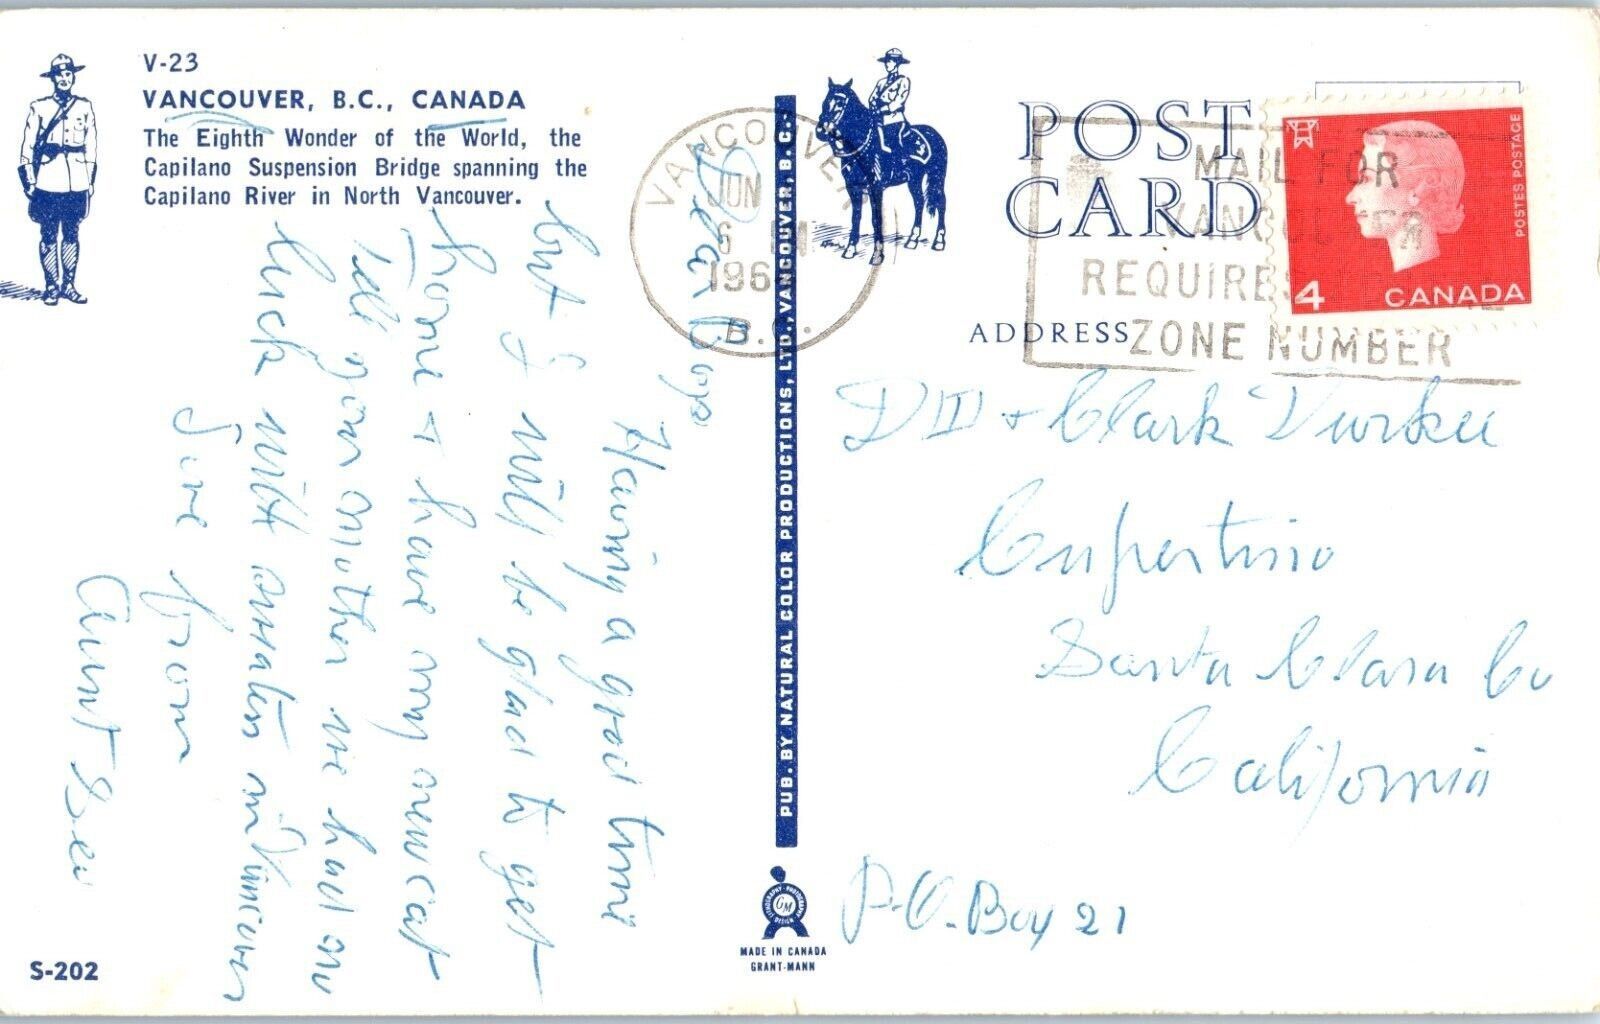 V-23
VANCOUVER, B.C., CANADA
The Eighth Wonder of the World, the
Capilano Suspension Bridge spanning the
Capilano River in North Vancouver.
Dear Boys
Having a good time
but I will be glad to get
home + have my own cat
Tell your mother we had our
luck with our in Vancouver
Love
from
Aunt Bee
S-202
PUB. BY NATURAL COLOR PRODUCTIONS, LTD., VANCOUVER, B.C.
LITHOGRAPHY · PHOTOGRAPHY
DESIGN
GM
MADE IN CANADA
GRANT-MANN
VANCOUVER
JUN
6 M
196
B.C.
POST
CARD
ADDRESS
MAIL FOR
VANCOUVER
REQUIRES
ZONE NUMBER
POSTES POSTAGE
4 CANADA
D III + Clark Durkee
Cupertino
Santa Clara Co
California
P.O. Box 21